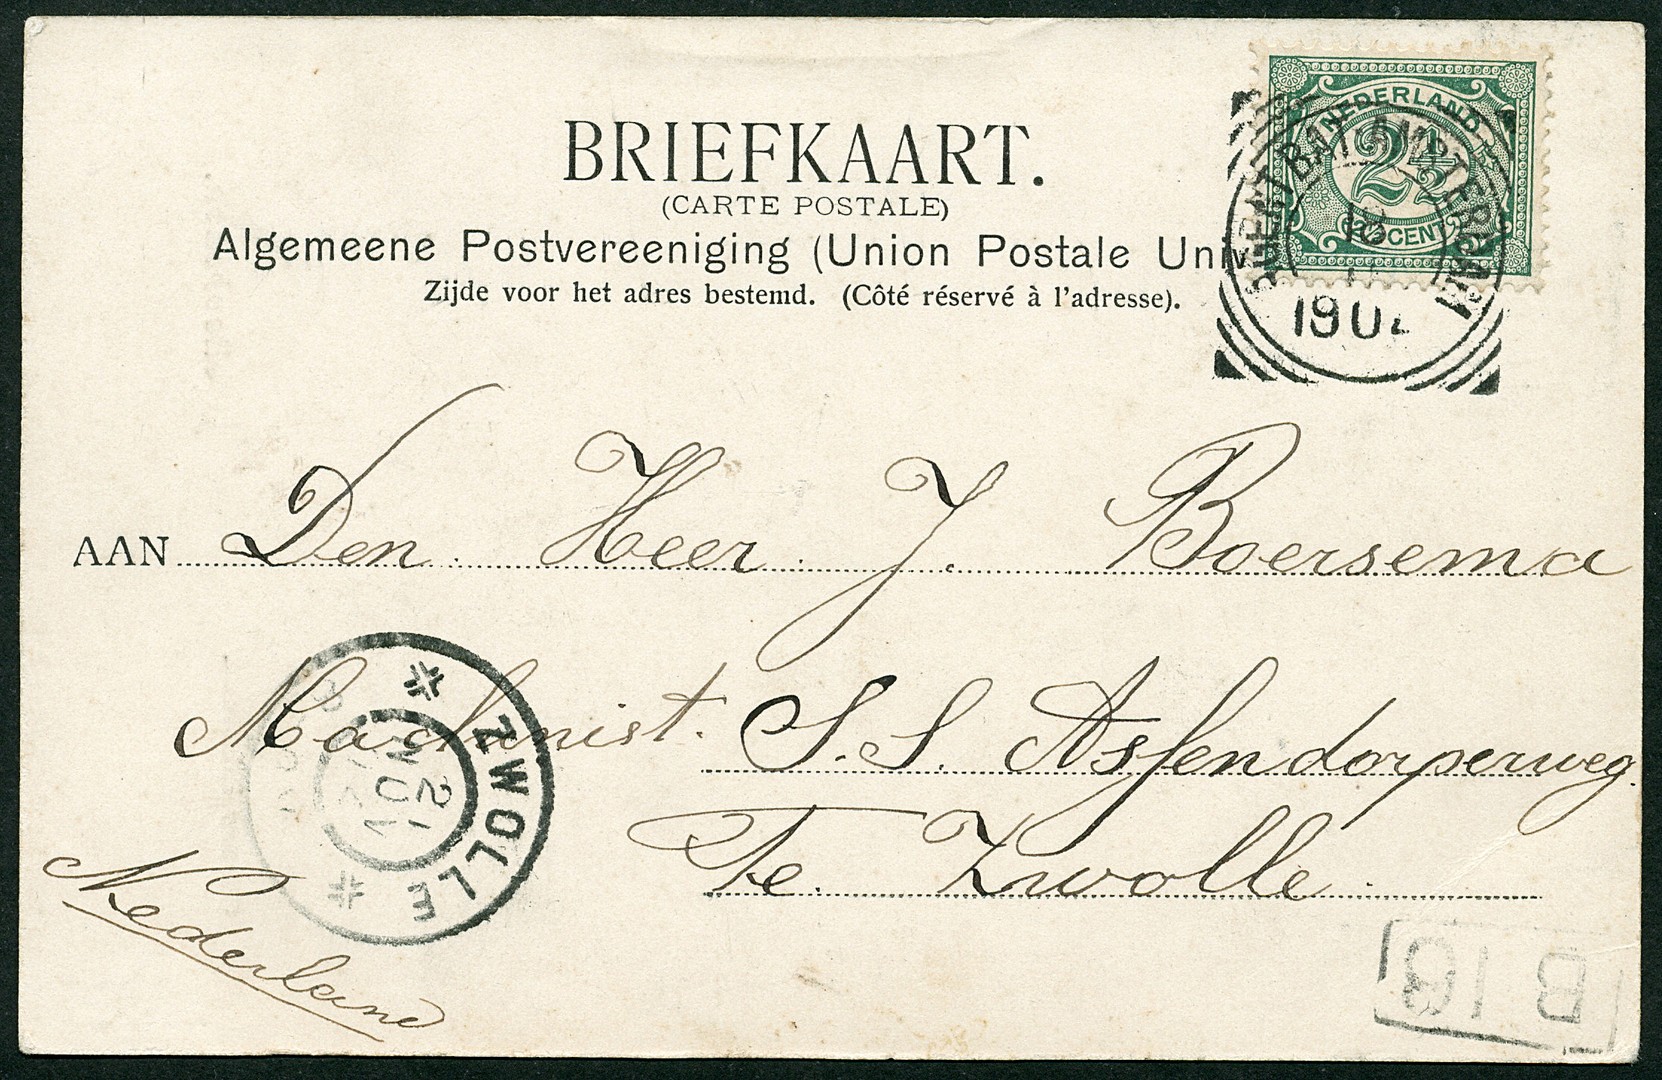 BRIEFKAART.
(CARTE POSTALE)
Algemeene Postvereeniging (Union Postale Univ
Zijde voor het adres bestemd. (Côté réservé à l'adresse).
NEDERLAND
2½
CENT
1902
AAN Den Heer J. Boersema
Machinist. S.S. Assendorperweg.
Te Zwolle
Nederland
ZWOLLE
2
NOV
B 16